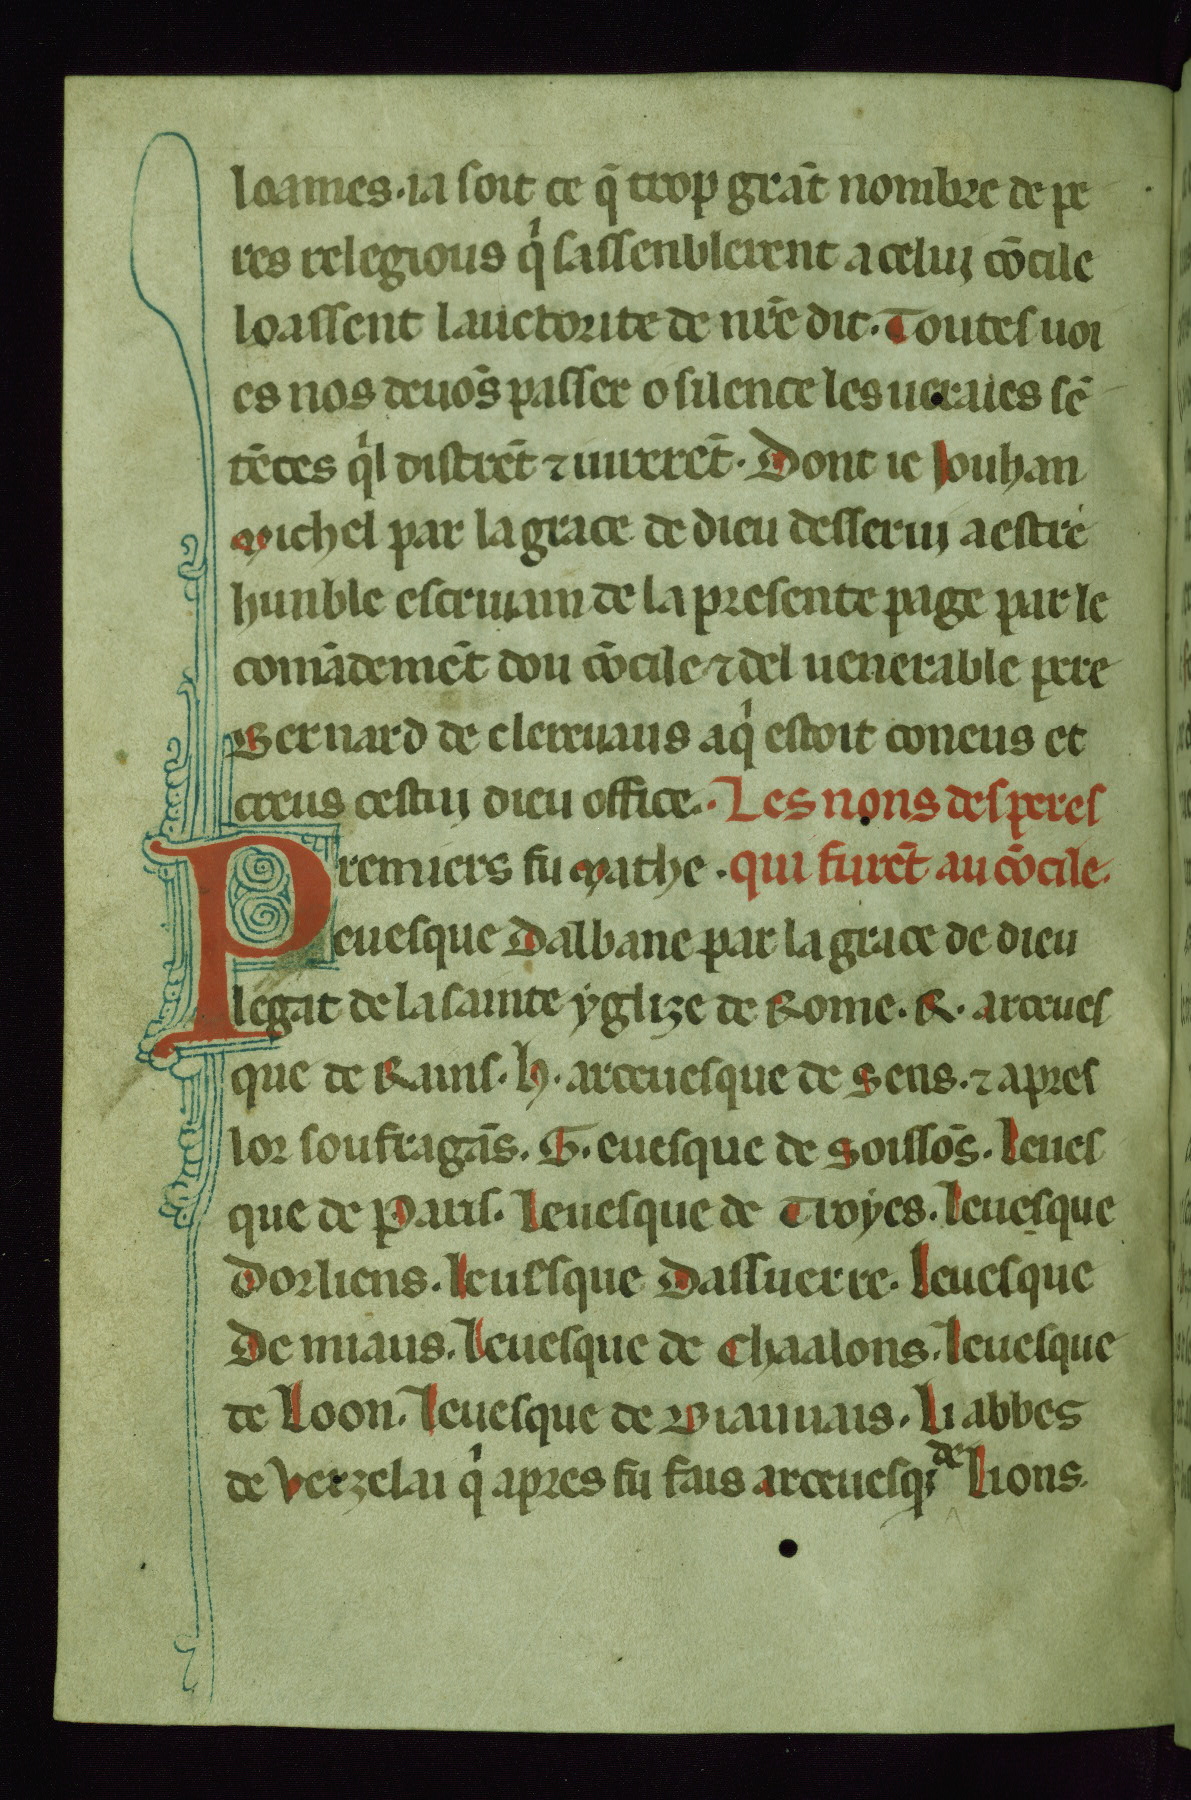 loames. ia soit ce q̄ trop grāt nombre de pe
res relegious qͥ sassenblerent a celui cōcile
loassent lauctorite de nr̄e dit. Toutes uoi
es nos deuōs passer o silence les ueraies sē
tēces qͥl distrēt ⁊ iurerēt. Dont ie Iouhan
Michel par la grace de dieu desserui a estre
hunble escriuain de la presente page par le
comādemēt dou cōcile ⁊ del uenerable pere
Bernard de clereuaus a qͥ estoit coneus et
creus cestui dieu office. Les nons des peres
Premiers fu Mathe. qui furēt au cōcile.
euesque Dalbane par la grace de dieu
legat de la sainte yglize de Rome. R. arceues
que de Rains. h. arceuesque de Sens. ⁊ apres
lor soufragās. G. euesque de Soissōs. Leues
que de Paris. Leuesque de Troyes. Leuesque
Dorliens. Leuesque Dassuerre. Leuesque
De miaus. Leuesque de Chaalons. Leuesque
de Loon. Leuesque de Biauuais. Li abbes
de Verzelai qͥ apres fu fais arceuesqꝫ de Lions.